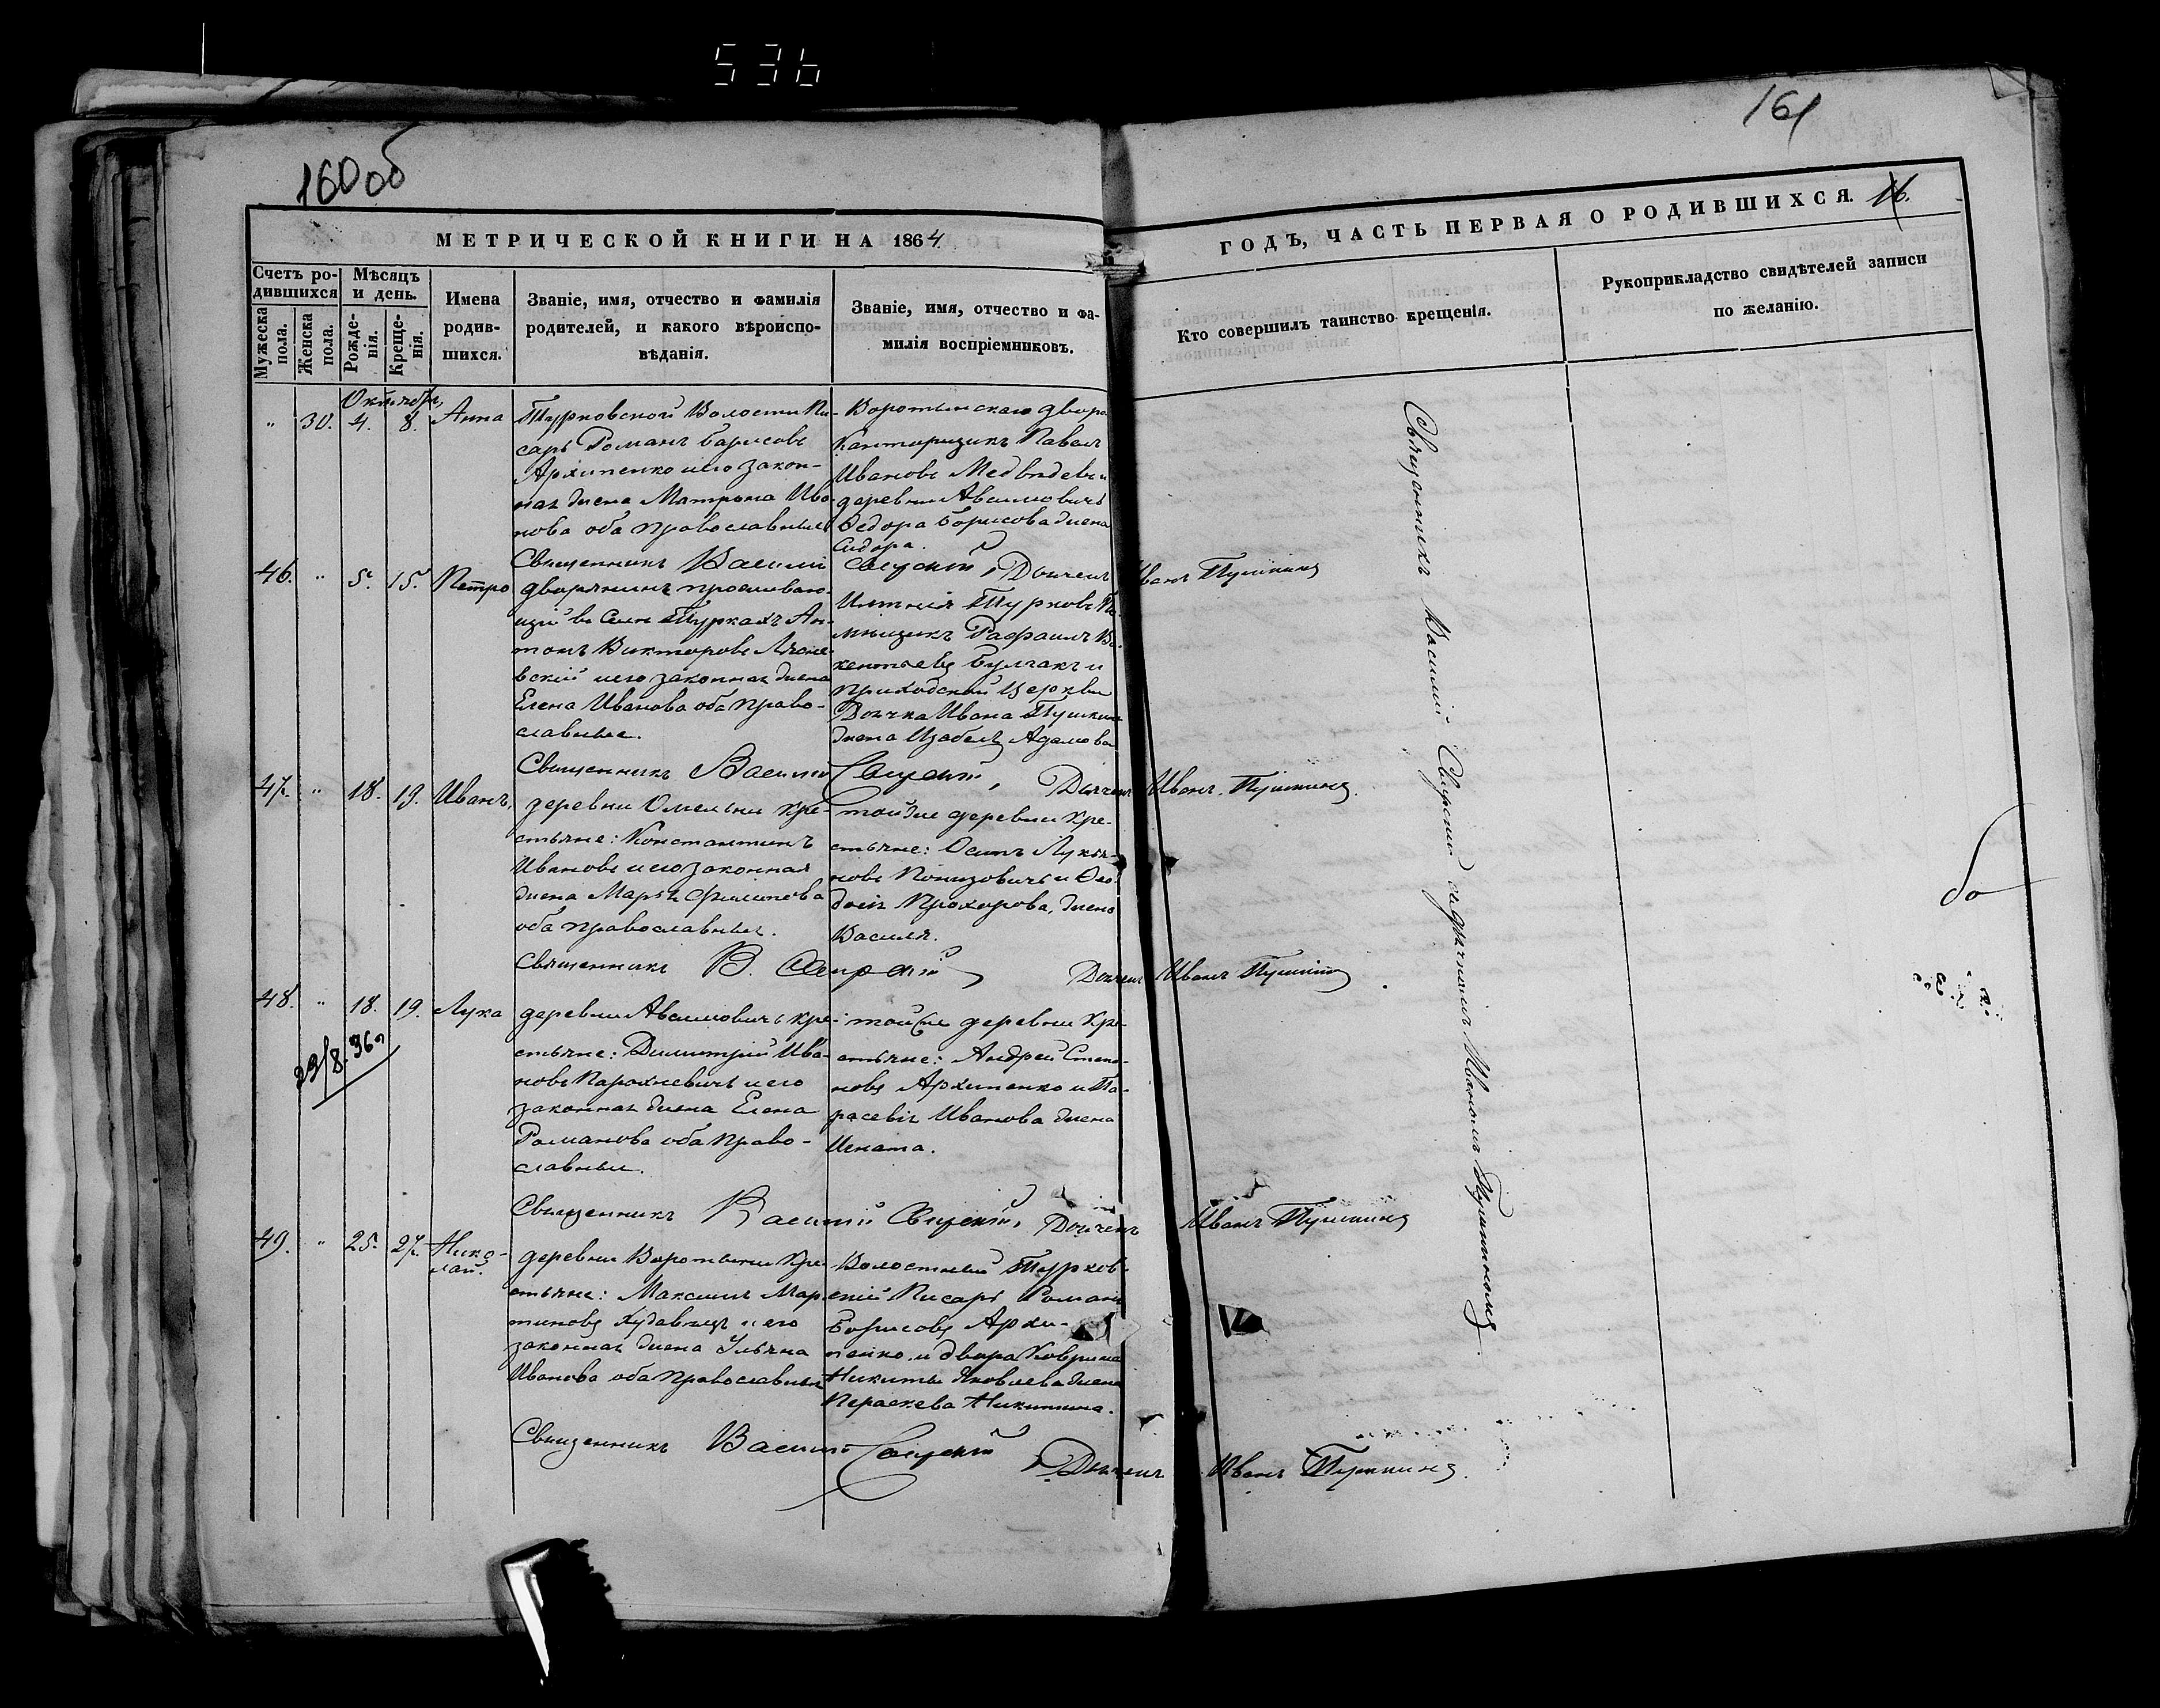 536
160 об
161
МЕТРИЧЕСКОЙ КНИГИ НА 1864
ГОДЪ, ЧАСТЬ ПЕРВАЯ О РОДИВШИХСЯ. 16.
Счетъ ро-
дившихся
Мужеска
пола.
Женска
пола.
Мѣсяцъ
и день.
Рожде-
нія.
Креще-
нія.
Имена
родив-
шихся.
Званіе, имя, отчество и фамилія
родителей, и какого вѣроиспо-
вѣданія.
Званіе, имя, отчество и фа-
милія воспріемниковъ.
Кто совершилъ таинство крещенія.
Рукоприкладство свидѣтелей записи
по желанію.
Октября
" 30. 4. 8. Анна
Турковской Волости Пи-
сарь Романъ Борисовъ
Архипенко и его закон-
ная жена Матрона Ива-
нова оба православные
Воротынскаго двора
Конторщикъ Павелъ
Ивановъ Медвѣдевъ и
деревни Авсимовичъ
Федора Борисова жена
Сидора.
Священникъ Василій Свирскій, Дьячекъ Иванъ Пушкинъ
46. " 5. 15. Петро
дворянинъ проживаю-
щій въ Селѣ Туркахъ Ан-
тонъ Викторовъ
и его законная жена
Елена Иванова оба право-
славные.
Имѣнія Турковъ По-
мѣщикъ Рафаилъ Ви-
кентьевъ Булгакъ и
приходской Церкви
Дьячка Ивана Пушкина
жена Изабела Адамова
Священникъ Василій Свирскій, Дьячекъ Иванъ Пушкинъ.
47. " 18. 19. Иванъ,
деревни Омельни кре-
стьяне: Константинъ
Ивановъ и его законная
жена Марья Филипова
оба православные.
тойже деревни Кре-
стьяне: Осипъ Лукья-
новъ Понизовичъ и Ѳео-
досія Прохорова, жена
Василя.
Священникъ В. Свирскій, Дьячекъ Иванъ Пушкинъ
48. " 18. 19. Лука
23/8. 36г
деревни Авсимовичъ кре-
стьяне: Димитрій Ива-
новъ Парахневичъ и его
законная жена Елена
Романова оба право-
славные.
тойже деревни Кре-
стьяне: Андрей Степа-
новъ Архипенко и Па-
расевія Иванова жена
Игната.
Священникъ Василій Свирскій, Дьячекъ Иванъ Пушкинъ
49. " 25. 27. Нико-
лай.
деревни Воротыни Кре-
стьяне: Максимъ Мар-
тиновъ и его
законная жена Ульяна
Иванова оба православные
Волостный Турков-
скій Писарь Романъ
Борисовъ Архи-
пенко и двора Коврина
Никиты Яковлева жена
Пераскева Никитина.
Священникъ Василій Свирскій Дьячекъ Иванъ Пушкинъ.
Священникъ Василій Свирскій съ дьячкомъ Иваномъ Пушкинымъ